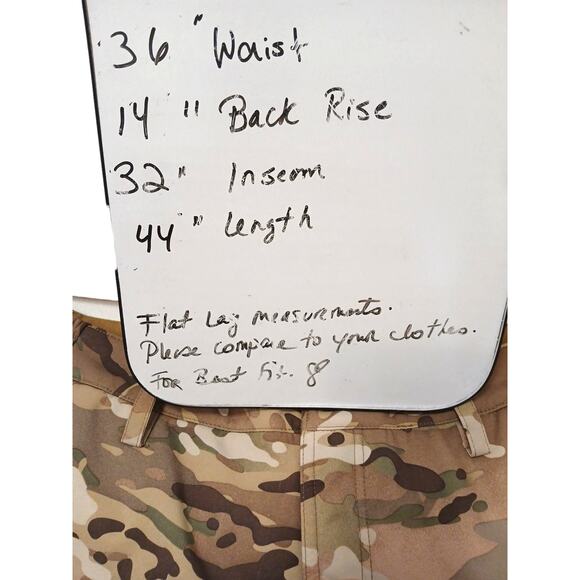 36 " Waist
14 " Back Rise
32" Inseam
44" Length
Flat Lay measurements.
Please compare to your clothes.
For Best Fit.